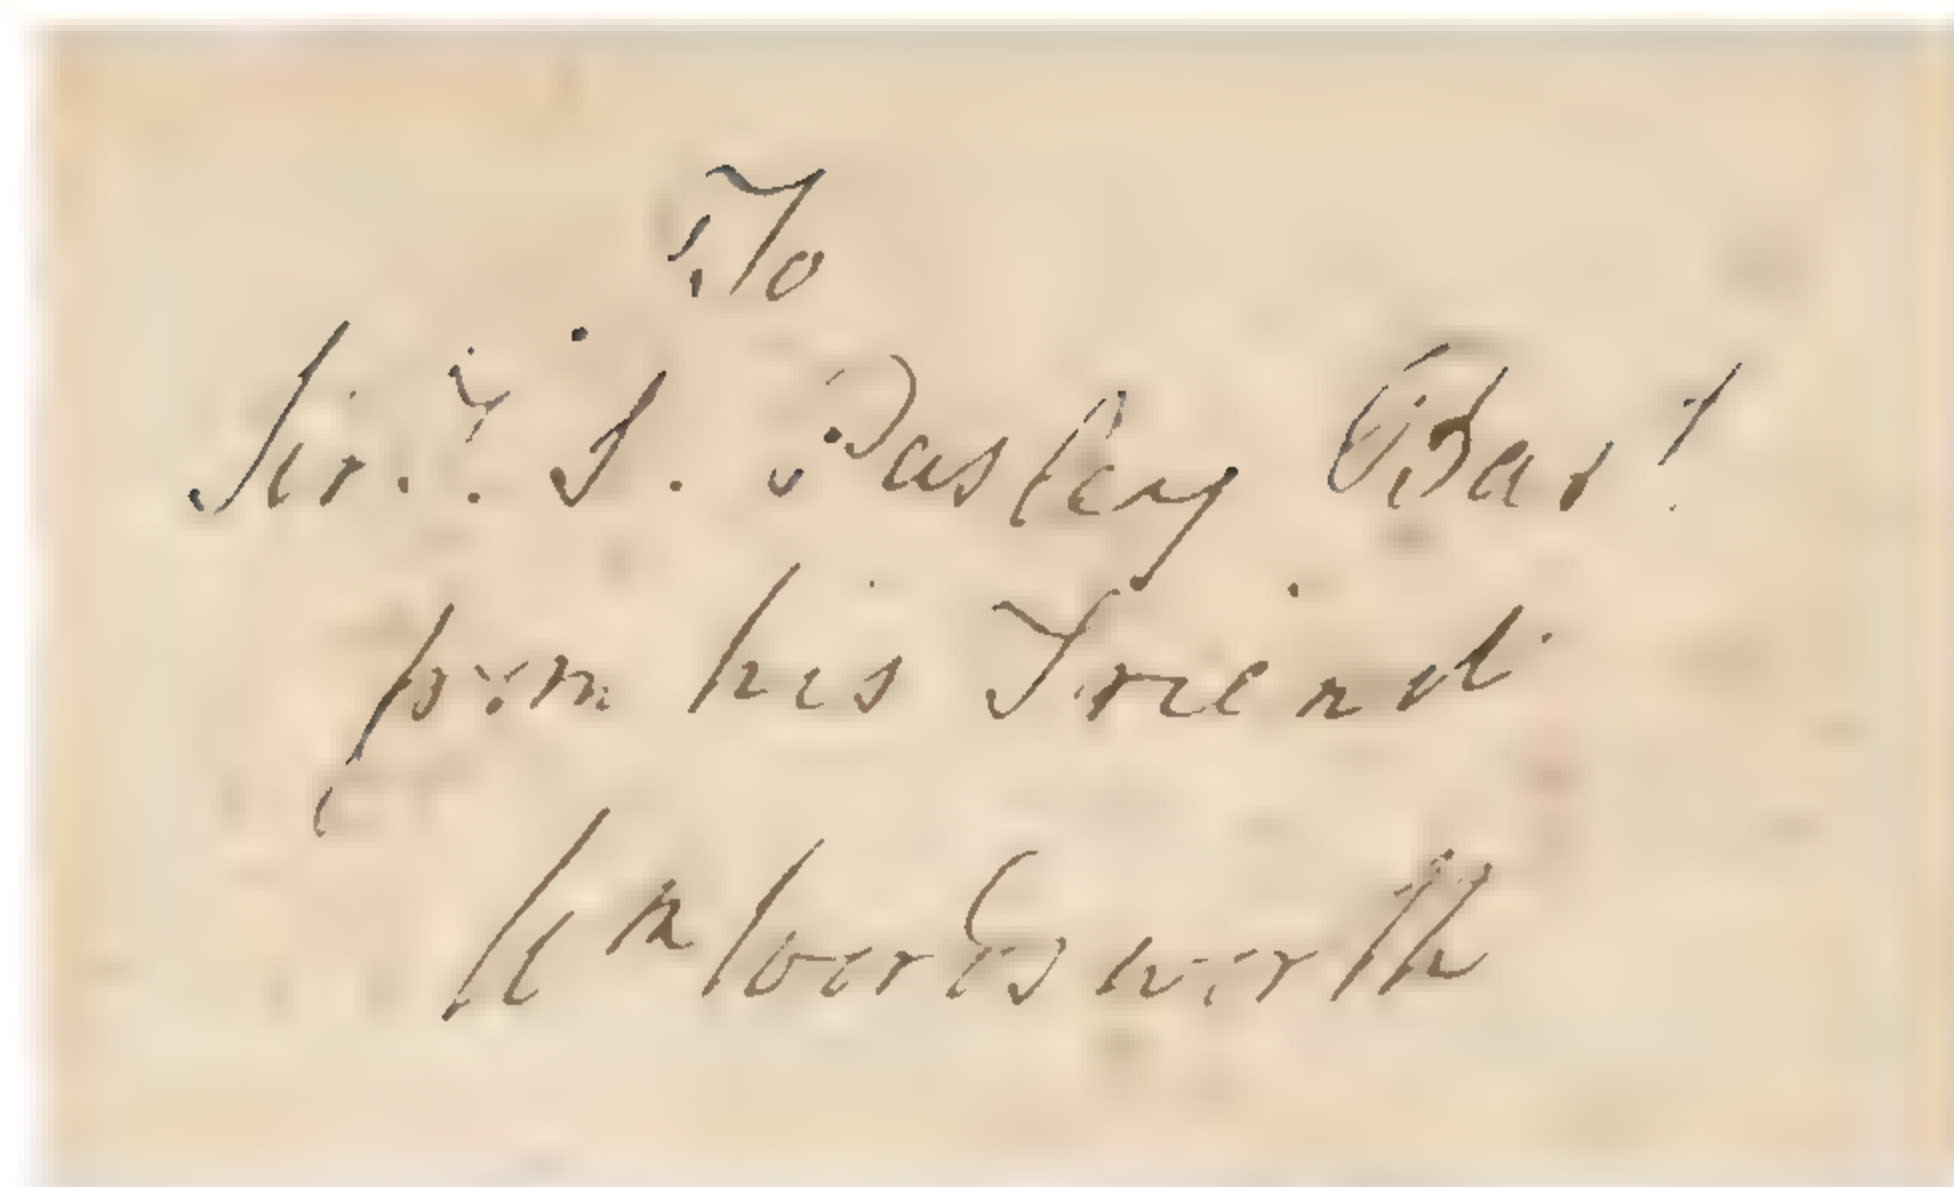 To
Sir. T. S. Pasley Bart
from his Friend
Wm Wordsworth